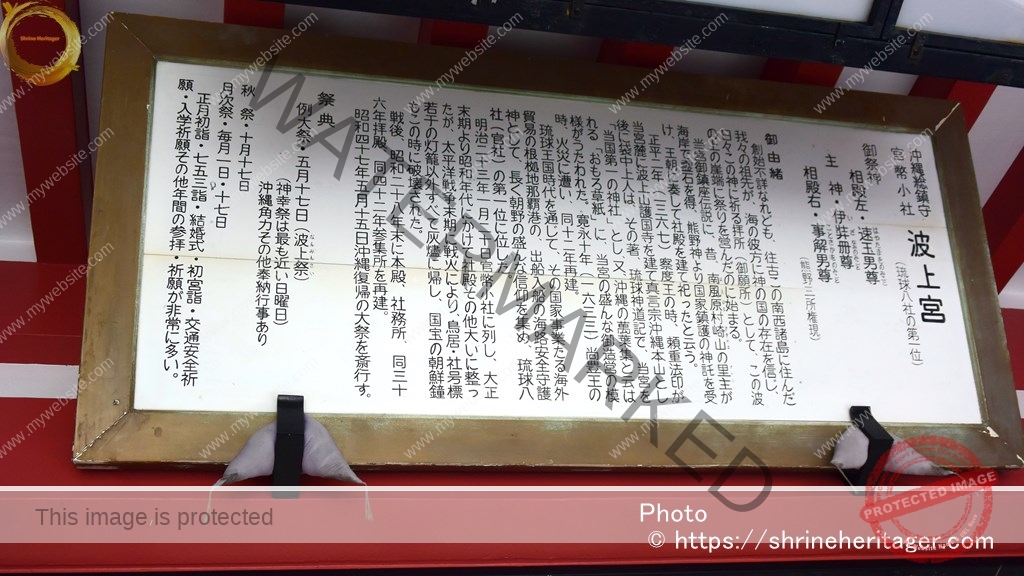 沖縄総鎮守
官幣小社
波上宮
(琉球八社の第一位)
御祭神
相殿左・速玉男尊
主神・伊弉冊尊
相殿右・事解男尊
(熊野三所権現)
御由緒
創始不詳なれども、往古この南西諸島に住んだ
我々の祖先が、海の彼方に神の国の存在を信し、
日々この神に祈る拝所(御願所)として、この波
の上の崖端に祭りを営んだのに始まる。
当宮御鎮座伝説に、昔、南風原村崎山の里主が
海岸で霊石を得、熊野神より国家鎮護の神託を受
け、王朝に奏して社殿を建て祀ったと云う。
正平二年(一三六七)察度王の時、頼重法印が
当宮磯に波上山護国寺を建て真言宗沖縄本山とし
後に袋中上人は、その著、琉球神道記で、当宮を
「当国第一の神社」とし、又、沖縄の萬葉集と云は
れる「おもろ草紙」に、当宮の盛んな御造営の模
様がうたわれた。寛永十年(一六三三)尚豊王の
時、火災に遭い、同十二年再建。
琉球王国時代を通じて、その国家事業たる海外
貿易の根拠地那覇港の、出船入船の海路安全守護
神として、長く朝野の盛んな信仰を集め、琉球八
社(官社)の第一位に位した。
明治二十三年一月二十日官幣小社に列し、大正
末期より昭和年代にかけて社殿その他大いに整っ
たが、太平洋戦争末期の戦火により、鳥居・社号標
若干の灯籠以外すべて灰燼に帰し、国宝の朝鮮鐘
もこの時に破壊された。
戦後、昭和二十八年末に本殿、社務所、同三十
六年拝殿、同四十二年参集所を再建。
昭和四十七年五月十五日沖縄復帰の大祭を斎行す。
祭典
例大祭・五月十七日(波上祭)
(神幸祭は最も近い日曜日)
沖縄角力その他奉納行事あり
秋祭・十月十七日
月次祭・毎月一日・十七日
正月初詣・七五三詣・結婚式・初宮詣・交通安全祈
願・入学祈願その他年間の参拝・祈願が非常に多い。
Shrine Heritager
WATERMARKED
www.mywebsite.com
PROTECTED IMAGE
This image is protected
Photo
© https://shrineheritager.com